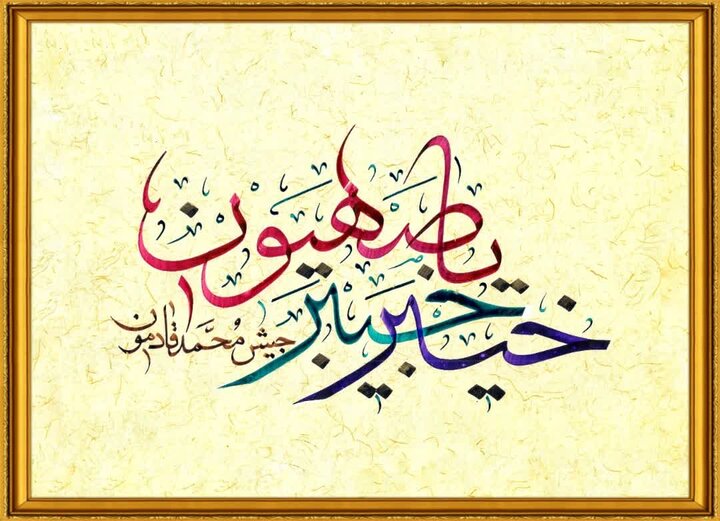 خیبر خیبر یا صهیون
جیش مُحَمَّد قادمون